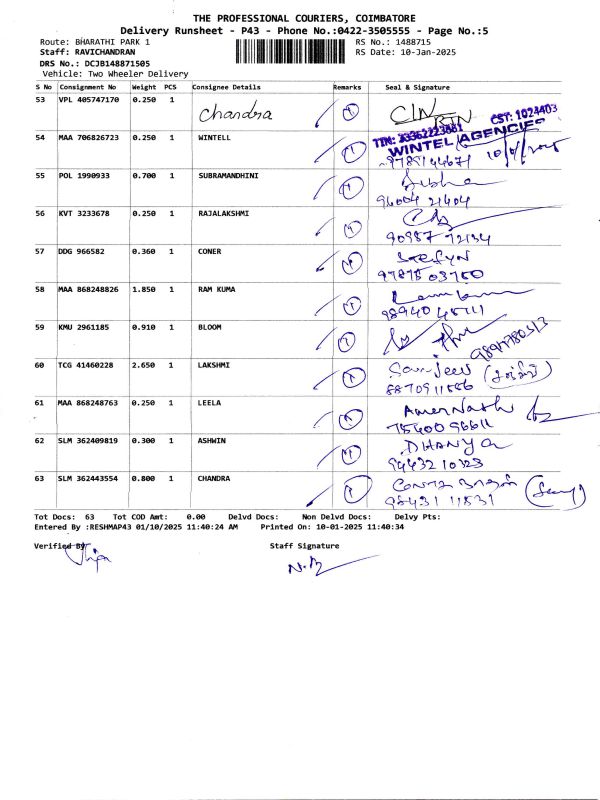 THE PROFESSIONAL COURIERS, COIMBATORE
Delivery Runsheet - P43 - Phone No.:0422-3505555 - Page No.:5
Route: BHARATHI PARK 1 RS No.: 1488715
Staff: RAVICHANDRAN RS Date: 10-Jan-2025
DRS No.: DCJB148871505
Vehicle: Two Wheeler Delivery
S No Consignment No Weight PCS Consignee Details Remarks Seal & Signature
53 VPL 405747170 0.250 1 Chandra
CST: 1024403
54 MAA 706826723 0.250 1 WINTELL WINTEL AGENCIES
55 POL 1990933 0.700 1 SUBRAMANDHINI
96004 21404
56 KVT 3233678 0.250 1 RAJALAKSHMI
90987 72134
57 DDG 966582 0.360 1 CONER
97875 03750
58 MAA 868248826 1.850 1 RAM KUMA
59 KMU 2961185 0.910 1 BLOOM
60 TCG 41460228 2.650 1 LAKSHMI
8870911566
61 MAA 868248763 0.250 1 LEELA
62 SLM 362409819 0.300 1 ASHWIN DHANYA
94432 10323
63 SLM 362443554 0.800 1 CHANDRA
98431 11831
Tot Docs: 63 Tot COD Amt: 0.00 Delvd Docs: Non Delvd Docs: Delvy Pts:
Entered By :RESHMAP43 01/10/2025 11:40:24 AM Printed On: 10-01-2025 11:40:34
Verified By Staff Signature